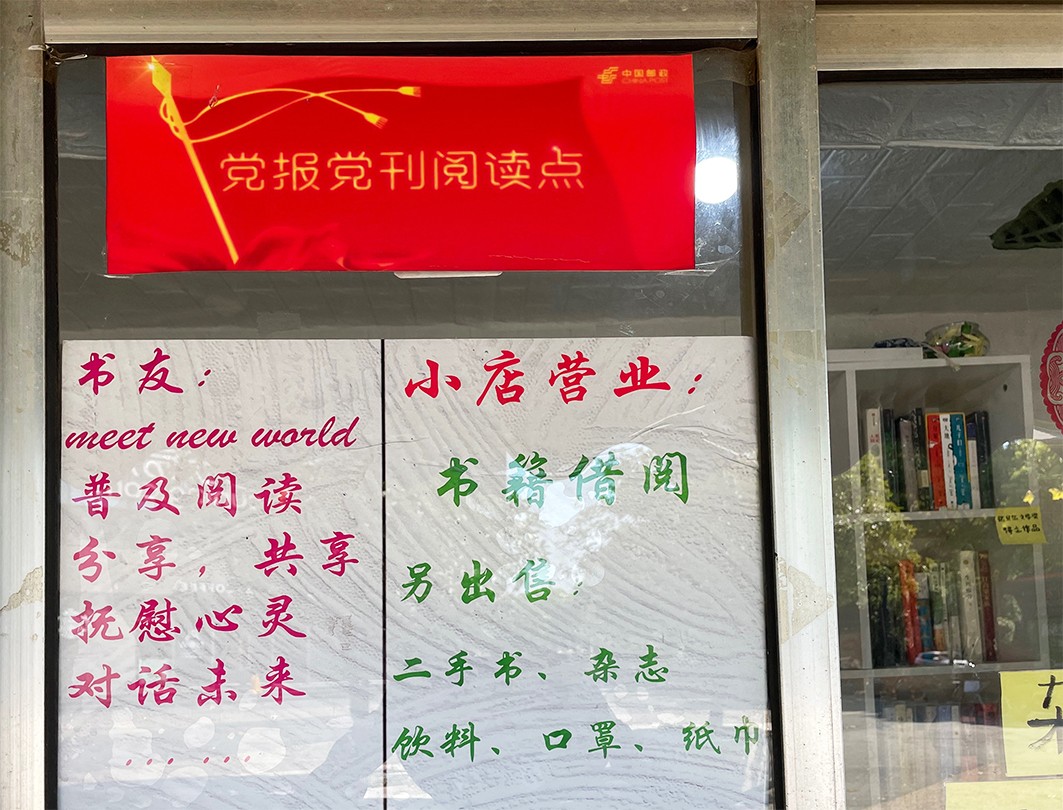 中国邮政
CHINA POST
党报党刊阅读点
书友：
meet new world
普及阅读
分享，共享
抚慰心灵
对话未来
... ...
小店营业：
书籍借阅
另出售：
二手书、杂志
饮料、口罩、纸巾